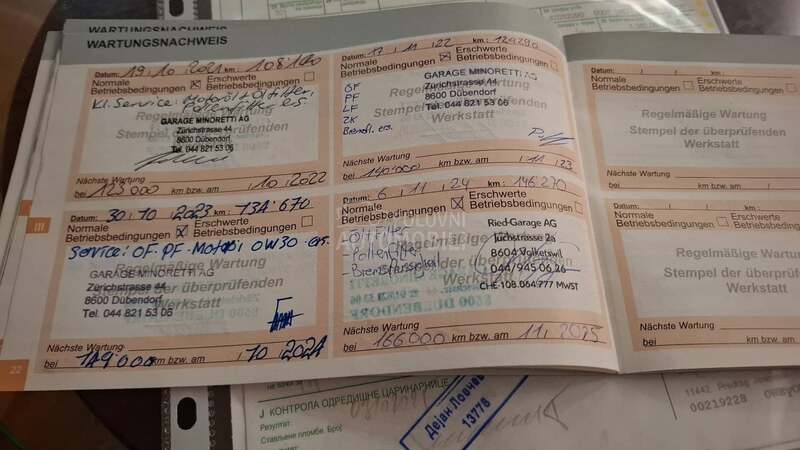 WARTUNGSNACHWEIS
WARTUNGSNACHWEIS
Datum: 19.10.2021 km: 108100
Normale Betriebsbedingungen
Erschwerte Betriebsbedingungen
Kl. Service: Motoröl + Ölfilter,
Pollenfilter ers.
Regelmäßige Wartung
Stempel der überprüfenden
Werkstatt
GARAGE MINORETTI AG
Zürichstrasse 44
8600 Dübendorf
Tel. 044 821 53 06
Nächste Wartung
bei 123000 km bzw. am 10.2022
Datum: 17.11.22 km: 124290
Normale Betriebsbedingungen
Erschwerte Betriebsbedingungen
ÖF
PF
LF
ZK
GARAGE MINORETTI AG
Zürichstrasse 44
8600 Dübendorf
Tel. 044 821 53 06
Nächste Wartung
bei 140000 km bzw. am 11.23
Datum: 30.10.2023 km: 134 670
Normale Betriebsbedingungen
Erschwerte Betriebsbedingungen
Service: OF. PF. Motoröl 0W30 ers.
Regelmäßige Wartung
Stempel der überprüfenden
Werkstatt
GARAGE MINORETTI AG
Zürichstrasse 44
8600 Dübendorf
Tel. 044 821 53 06
Nächste Wartung
bei 149000 km bzw. am 10.2024
Datum: 6.11.24 km: 146270
Normale Betriebsbedingungen
Erschwerte Betriebsbedingungen
- Pollenfilter
Ried-Garage AG
Juchstrasse 2a
8604 Volketswil
044/945 06 26
CHE-108.064.777 MWST
Nächste Wartung
bei 166000 km bzw. am 11.2025
Datum: / / km:
Normale Betriebsbedingungen
Regelmäßige Wartung
Stempel der überprüfenden
Werkstatt
Nächste Wartung
bei
Datum: / / km:
Normale Betriebsbedingungen
Regelmäßige Wartung
Stempel der überprüfenden
Werkstatt
Nächste Wartung
bei
III
22
J КОНТРОЛА ОДРЕДИШНЕ ЦАРИНАРНИЦЕ
Резултат:
Стављене пломбе: Број
Дејан Ловчев
13778
00219228